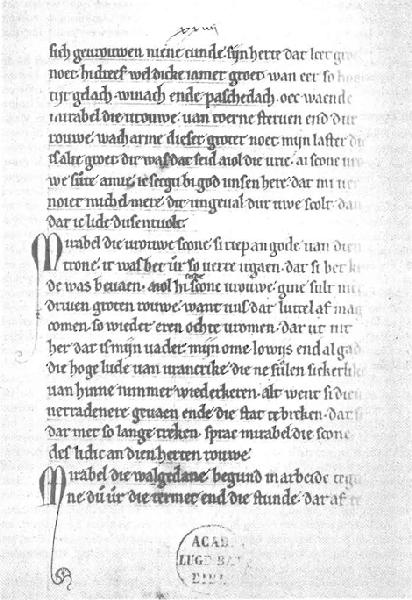 xxvij
sich gevrouwen niene cunde. sijn herte dar leet
noet. hi dreef wel dicke iamer groet. wan eer so ho
tijt gedach. winach ende paschedach. oec waende
mirabel die vrouwe. van toerne sterven end dur
rouwe. wacharme dieser groter noet. mijn laster di
is alze groet. dit was dat seid aiol die vrie. ai scone
we sute amie. ie secgu bi god unsen here. dat mi
noiet michel mere. dit ungeual. dur uwe scolt.
dat ic lide dusentuolt.
Mirabel die vrouwe scone. si riep an gode van
trone. it was her so verre irgaen. dat si her
de was bevaen. aiol hi scone vrouwe. gine sult
driven groten rouwe. want uns dar luttel af mag
comen. so wieder eren ochte vromen. dar
her dat is mijn vader. mijn ome lowijs end al gad
die hoge lude van vrancrike. die ne sulen sickerlik
van hinne nummer wiederkeren. alt went si dien
verradenere gevaen ende die stat tebreken. dar
dar met so lange treken. sprac mirabel die scone
des lidic an dien herten rouwe.
Mirabel die walgedane. begund in arbeide
ne die termet end die stunde. dar af
ACAD.
LUGD BAT
BIBL